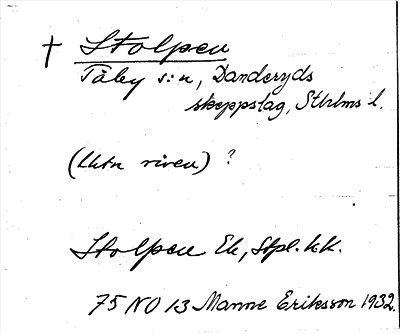 † Stolpen
Täby s:n, Danderyds
skeppslag, Sthlms l.
(Utn riven) ?
Stolpen Ek, Stpl. k.k.
75 NO 13 Manne Eriksson 1932.